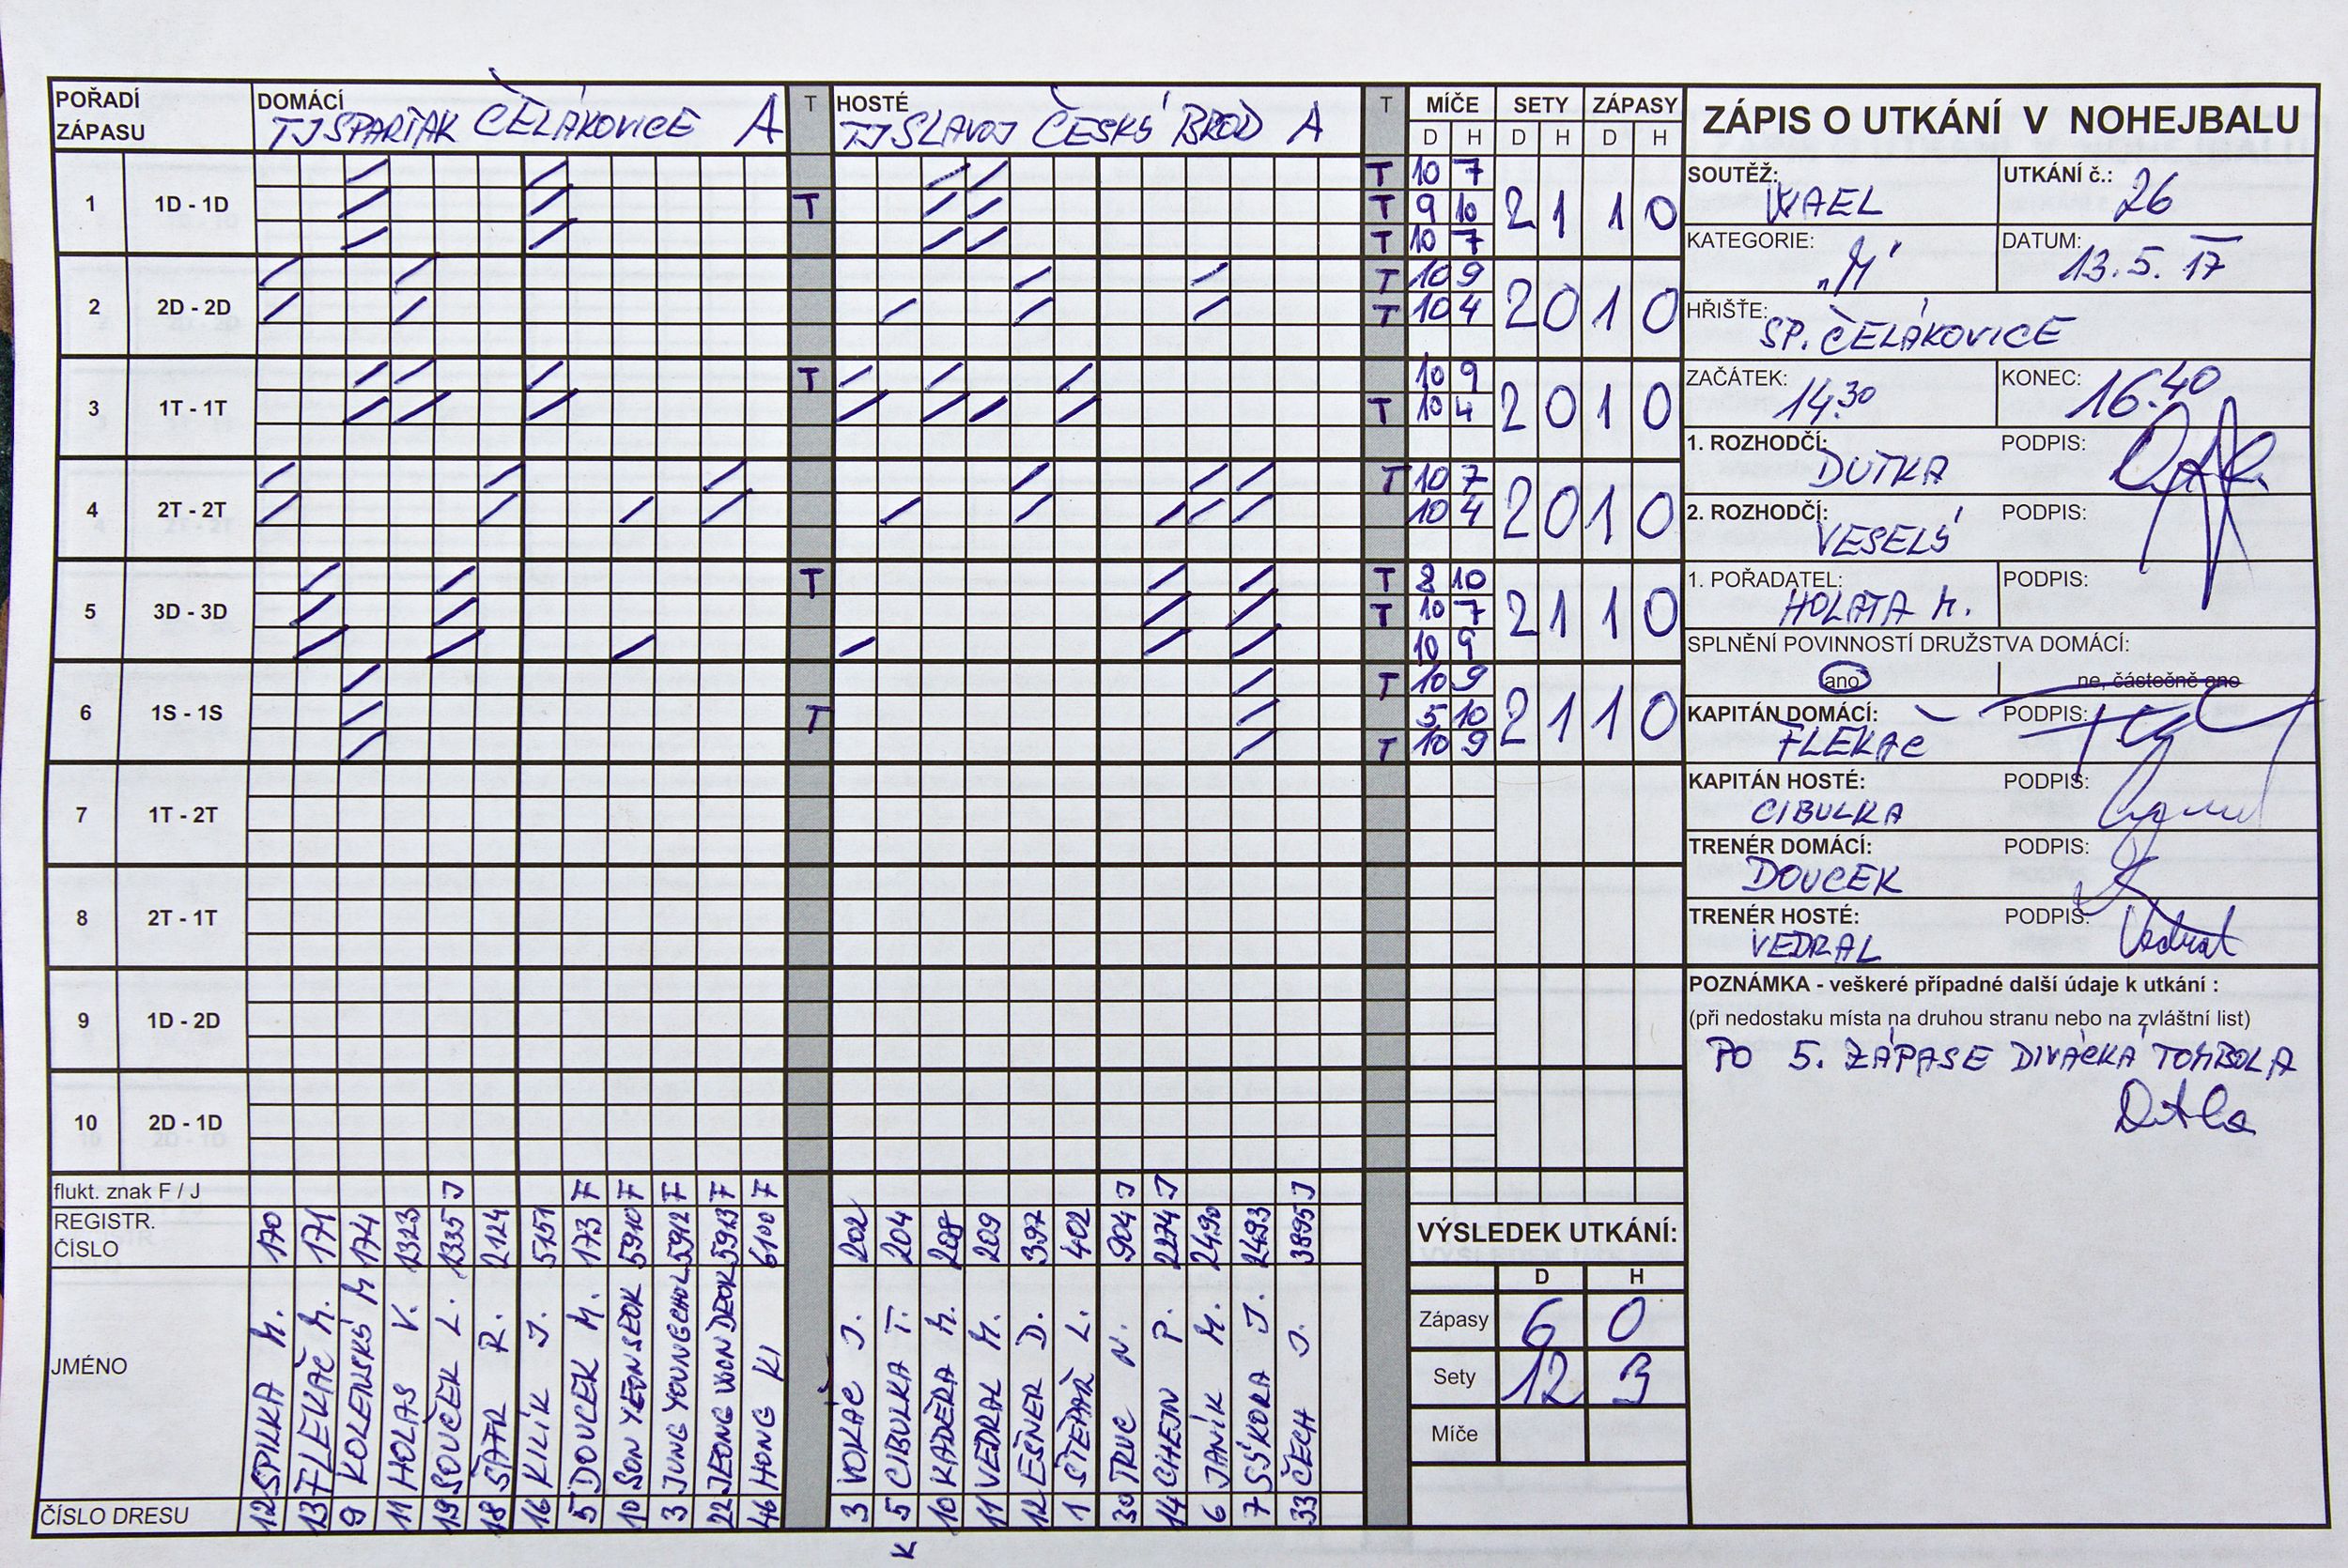 POŘADÍ ZÁPASU
DOMÁCÍ TJ SPARTAK ČELÁKOVICE A
T
HOSTÉ TJ SLAVOJ ČESKÝ BROD A
T
MÍČE SETY ZÁPASY
D H D H D H
1 1D - 1D T T 10 7 2 1 1 0
T 9 10
T 10 7
2 2D - 2D T 10 9 2 0 1 0
T 10 4
3 1T - 1T T 10 9 2 0 1 0
T 10 4
4 2T - 2T T 10 7 2 0 1 0
10 4
5 3D - 3D T T 8 10 2 1 1 0
T 10 7
10 9
6 1S - 1S T T 10 9 2 1 1 0
5 10
T 10 9
7 1T - 2T
8 2T - 1T
9 1D - 2D
10 2D - 1D
flukt. znak F / J
REGISTR. ČÍSLO
JMÉNO
ČÍSLO DRESU
12 SPILKA M. 170
13 FLEKAČ M. 171
9 KOLENSKÝ M 174
11 HOLAS V. 1323
19 SOUČEK L. 1335 J
18 ŠAFR R. 2124
16 KILÍK J. 5151
5 DOUCEK M. 173 F
10 SON YEONSEOK 5910 F
3 JUNG YOUNGCHOL 5912 F
22 JEONG WONDEOK 5913 F
46 HONG KI 6100 F
3 VOKÁČ J. 202
K 5 CIBULKA T. 204
10 KADĚRA M. 208
11 VEDRAL M. 209
12 EŠNER D. 397
1 ŠTĚPAŘ L. 402
30 TRUC N. 904 J
14 CHEJN P. 2274 J
6 JANÍK M. 2490
7 SÝKORA J. 2493
33 ČECH J. 3895 J
VÝSLEDEK UTKÁNÍ:
D H
Zápasy 6 0
Sety 12 3
Míče
ZÁPIS O UTKÁNÍ V NOHEJBALU
SOUTĚŽ: WAEL
UTKÁNÍ č.: 26
KATEGORIE: „M"
DATUM: 13.5.17
HŘIŠTĚ: SP. ČELÁKOVICE
ZAČÁTEK: 14.30
KONEC: 16.40
1. ROZHODČÍ: DUTKA
PODPIS:
2. ROZHODČÍ: VESELÝ
PODPIS:
1. POŘADATEL: HOLATA M.
PODPIS:
SPLNĚNÍ POVINNOSTÍ DRUŽSTVA DOMÁCÍ:
ano
ne, částečně ano
KAPITÁN DOMÁCÍ: FLEKAČ
PODPIS:
KAPITÁN HOSTÉ: CIBULKA
PODPIS:
TRENÉR DOMÁCÍ: DOUCEK
PODPIS:
TRENÉR HOSTÉ: VEDRAL
PODPIS: Vedral
POZNÁMKA - veškeré případné další údaje k utkání :
(při nedostaku místa na druhou stranu nebo na zvláštní list)
PO 5. ZÁPASE DIVÁCKÁ TOMBOLA